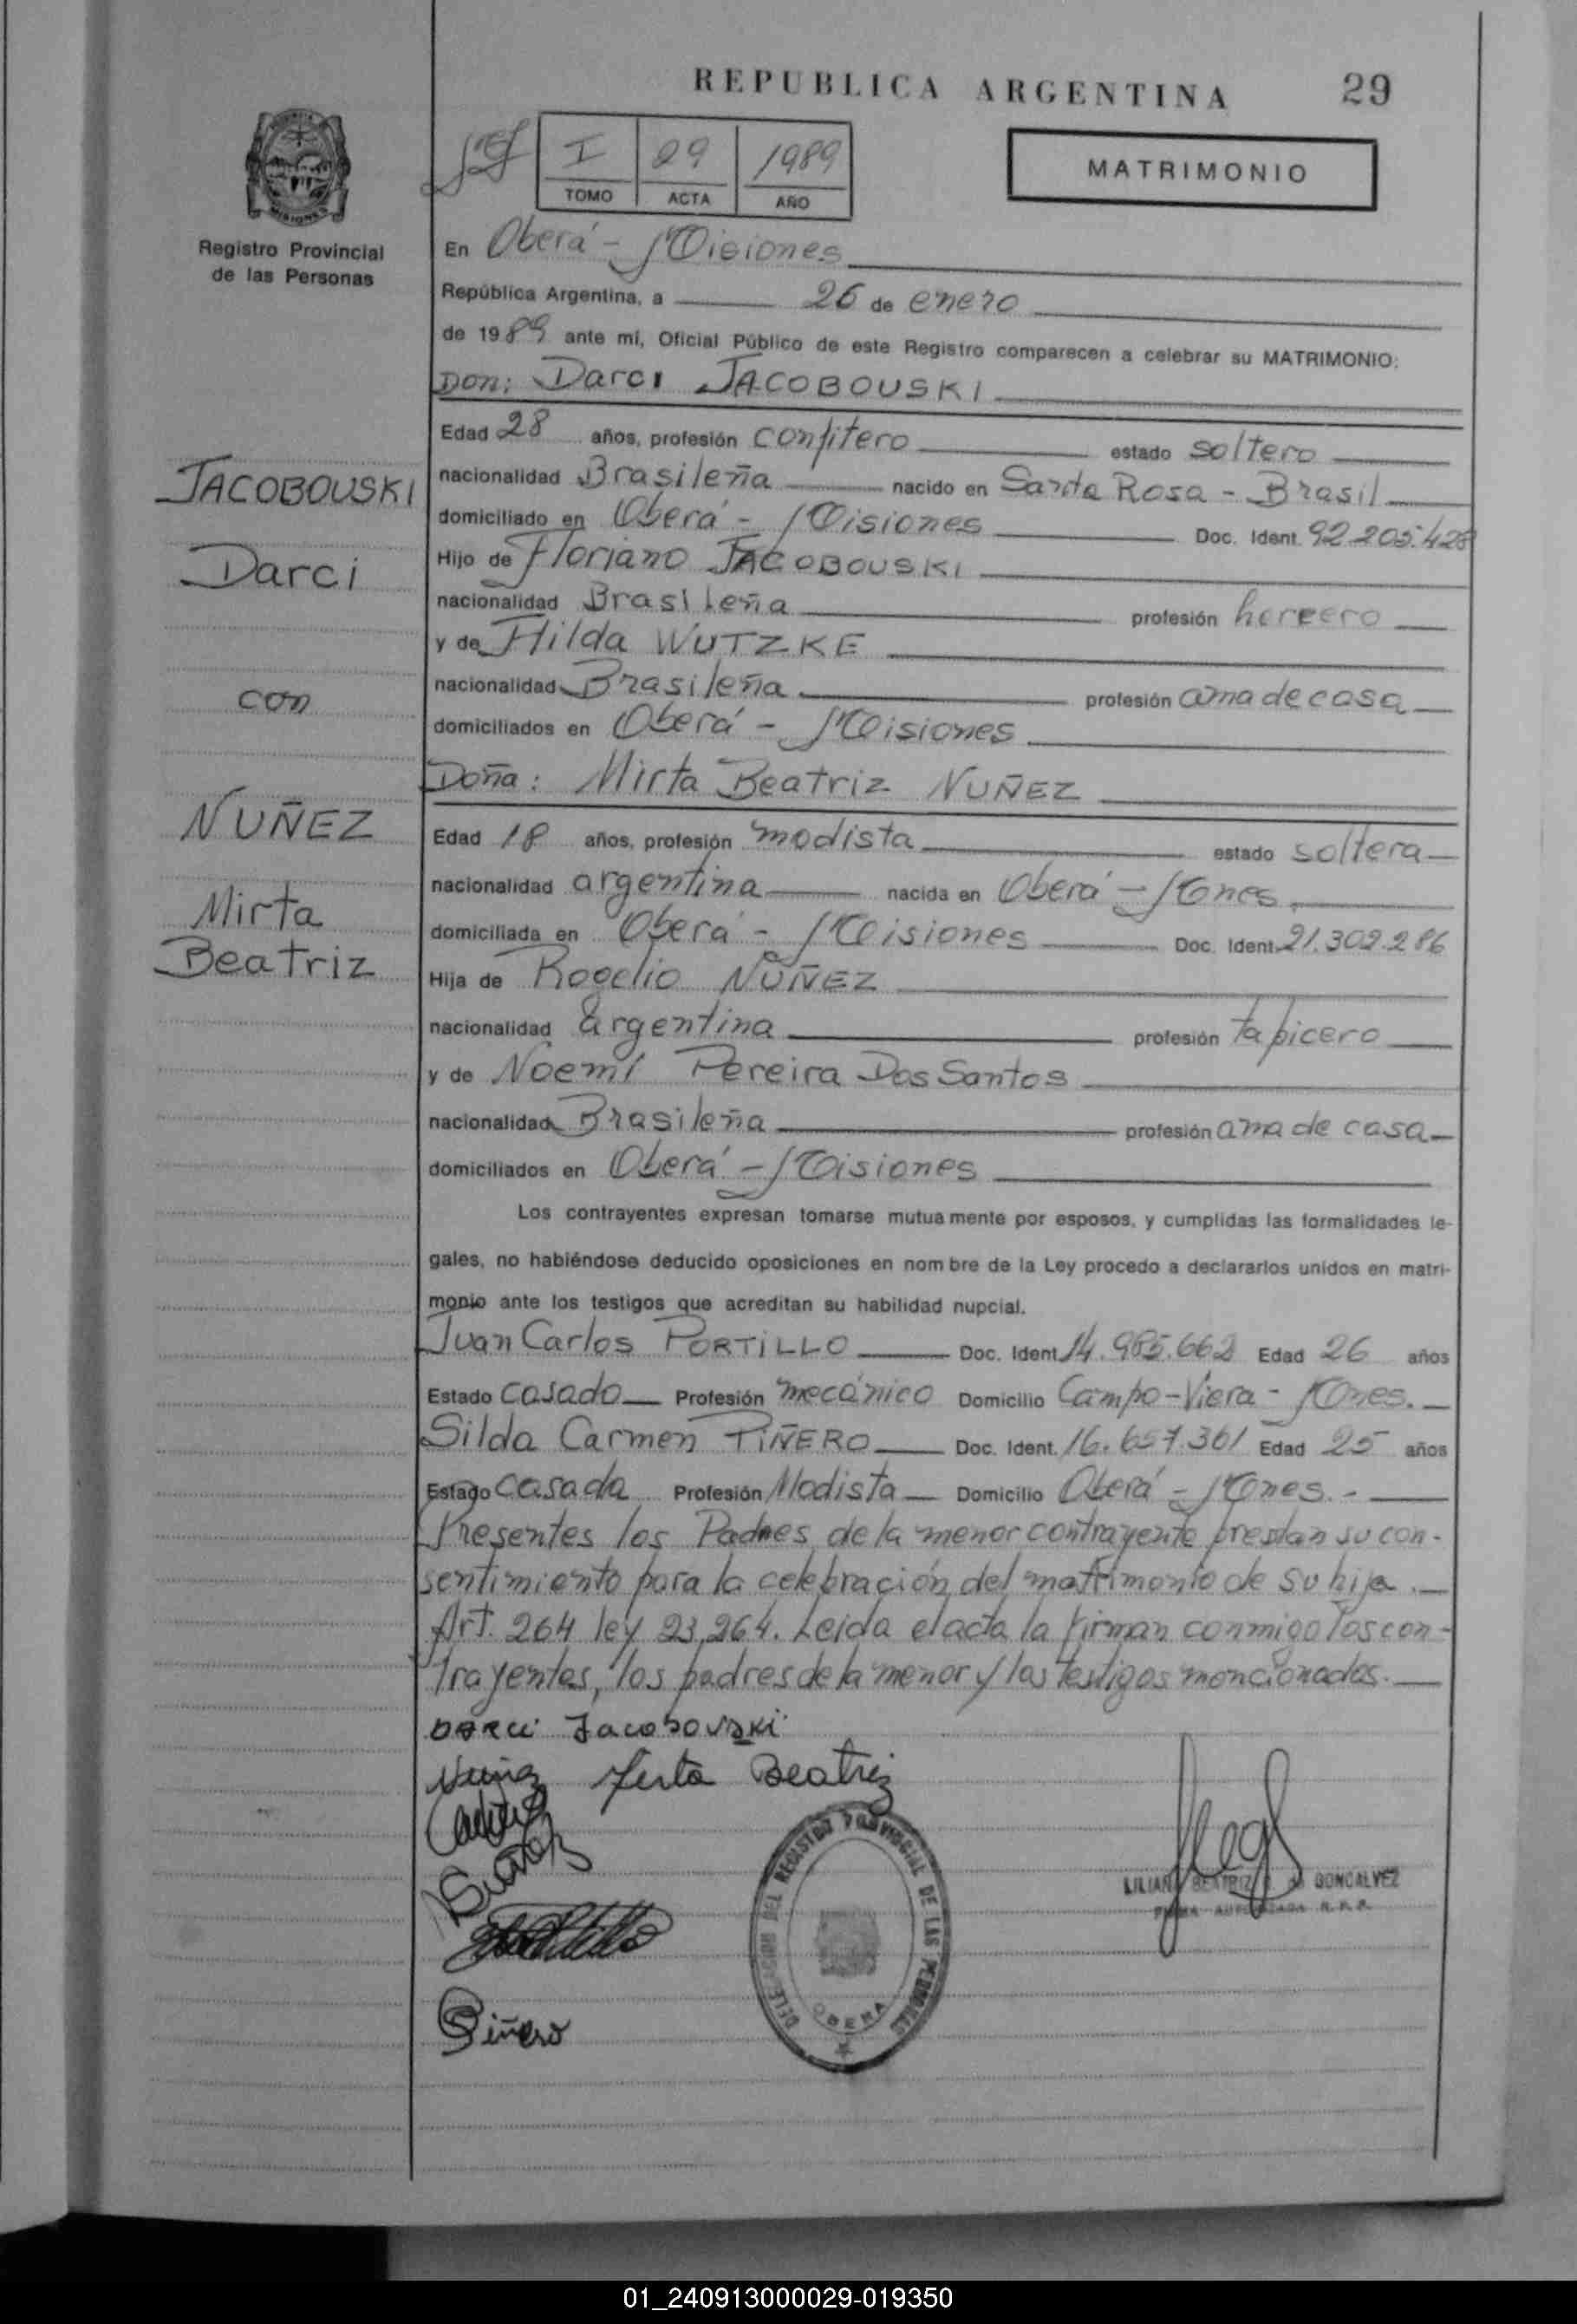 REPUBLICA ARGENTINA 29
I 29 1989
TOMO ACTA AÑO
MATRIMONIO
MISIONES
Registro Provincial
de las Personas
En Oberá - Misiones
República Argentina, a 26 de enero
de 1989 ante mí, Oficial Público de este Registro comparecen a celebrar su MATRIMONIO:
Don: Darci JACOBOUSKI
Edad 28 años, profesión confitero estado soltero
nacionalidad Brasileña nacido en Santa Rosa - Brasil
domiciliado en Oberá - Misiones Doc. Ident. 92.205.428
Hijo de Floriano JACOBOUSKI
nacionalidad Brasileña profesión herrero
y de Hilda WUTZKE
nacionalidad Brasileña profesión ama de casa
domiciliados en Oberá - Misiones
Doña: Mirta Beatriz NUÑEZ
Edad 18 años, profesión modista estado soltera
nacionalidad argentina nacida en Oberá - Mnes.
domiciliada en Oberá - Misiones Doc. Ident. 21.302.286
Hija de Rogelio NUÑEZ
nacionalidad argentina profesión tapicero
y de Noemí Pereira Dos Santos
nacionalidad Brasileña profesión ama de casa
domiciliados en Oberá - Misiones
JACOBOUSKI
Darci
con
NUÑEZ
Mirta
Beatriz
Los contrayentes expresan tomarse mutuamente por esposos, y cumplidas las formalidades le-
gales, no habiéndose deducido oposiciones en nombre de la Ley procedo a declararlos unidos en matri-
monio ante los testigos que acreditan su habilidad nupcial.
Juan Carlos PORTILLO Doc. Ident. 14.985.662 Edad 26 años
Estado casado Profesión mecánico Domicilio Campo-Viera - Mnes.
Silda Carmen PIÑERO Doc. Ident. 16.657.361 Edad 25 años
Estado casada Profesión Modista Domicilio Oberá - Mnes. -
Presentes los Padres de la menor contrayente prestan su con-
sentimiento para la celebración del matrimonio de su hija.
Art. 264 ley 23,264. Leída el acta la firman conmigo los con-
trayentes, los padres de la menor y los testigos mencionados.
DARCI Jacobovski
Nuñez Mirta Beatriz
Piñero
DELEGACION DEL REGISTRO PROVINCIAL DE LAS PERSONAS
OBERA
LILIANA BEATRIZ de GONCALVEZ
FIRMA AUTORIZADA R.P.P.
01_240913000029-019350